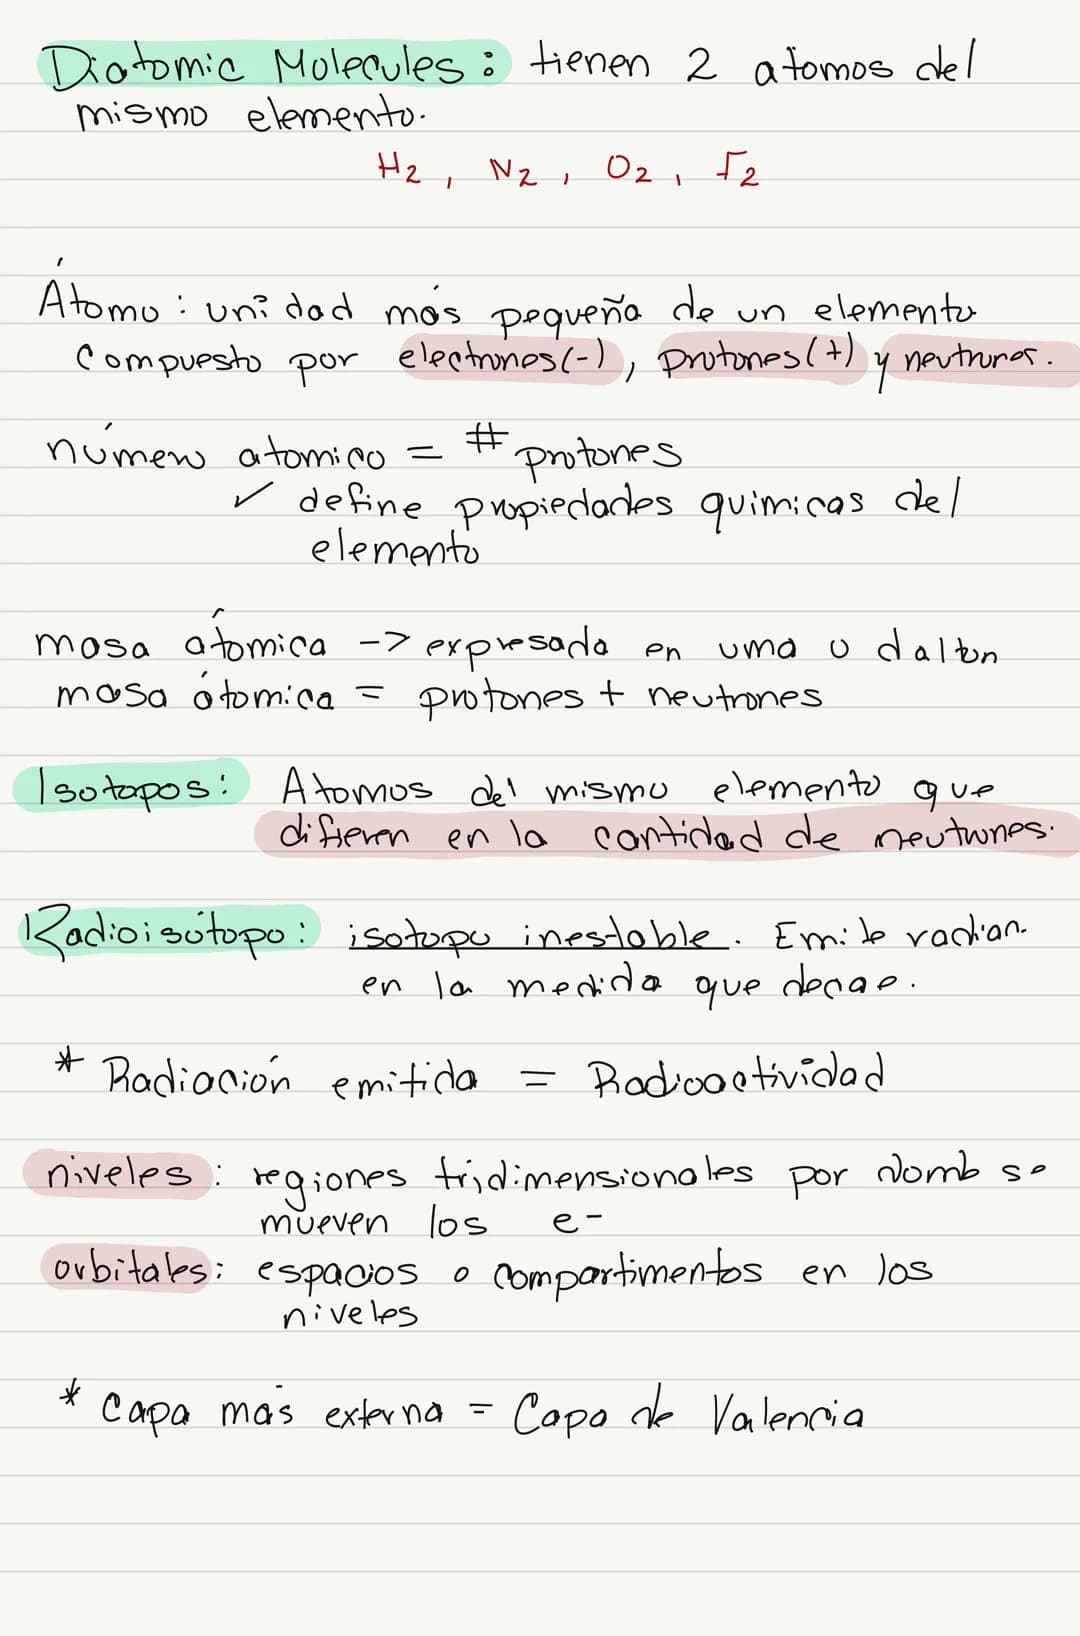 Diatomic Molecules: tienen 2 atomos del
mismo elemento.
H2, N2, O2, F2
Átomo: unidad más pequeña de un elemento
Compuesto por electrones(-), protones(+) y neutrones.
número atomico = # protones
✓ define propiedades quimicas del
elemento
masa átomica -> expresada en uma o dalton
masa átomica = protones + neutrones
Isotopos: Atomos del mismo elemento que
difieren en la cantidad de neutrones.
Radioisótopo: isotopo inestable. Emite radian.
en la medida que decae.
* Radiación emitida = Radioactividad
niveles: regiones tridimensionales por donde se
mueven los e-
orbitales: espacios o compartimentos en los
niveles
* Capa más externa = Capa de Valencia